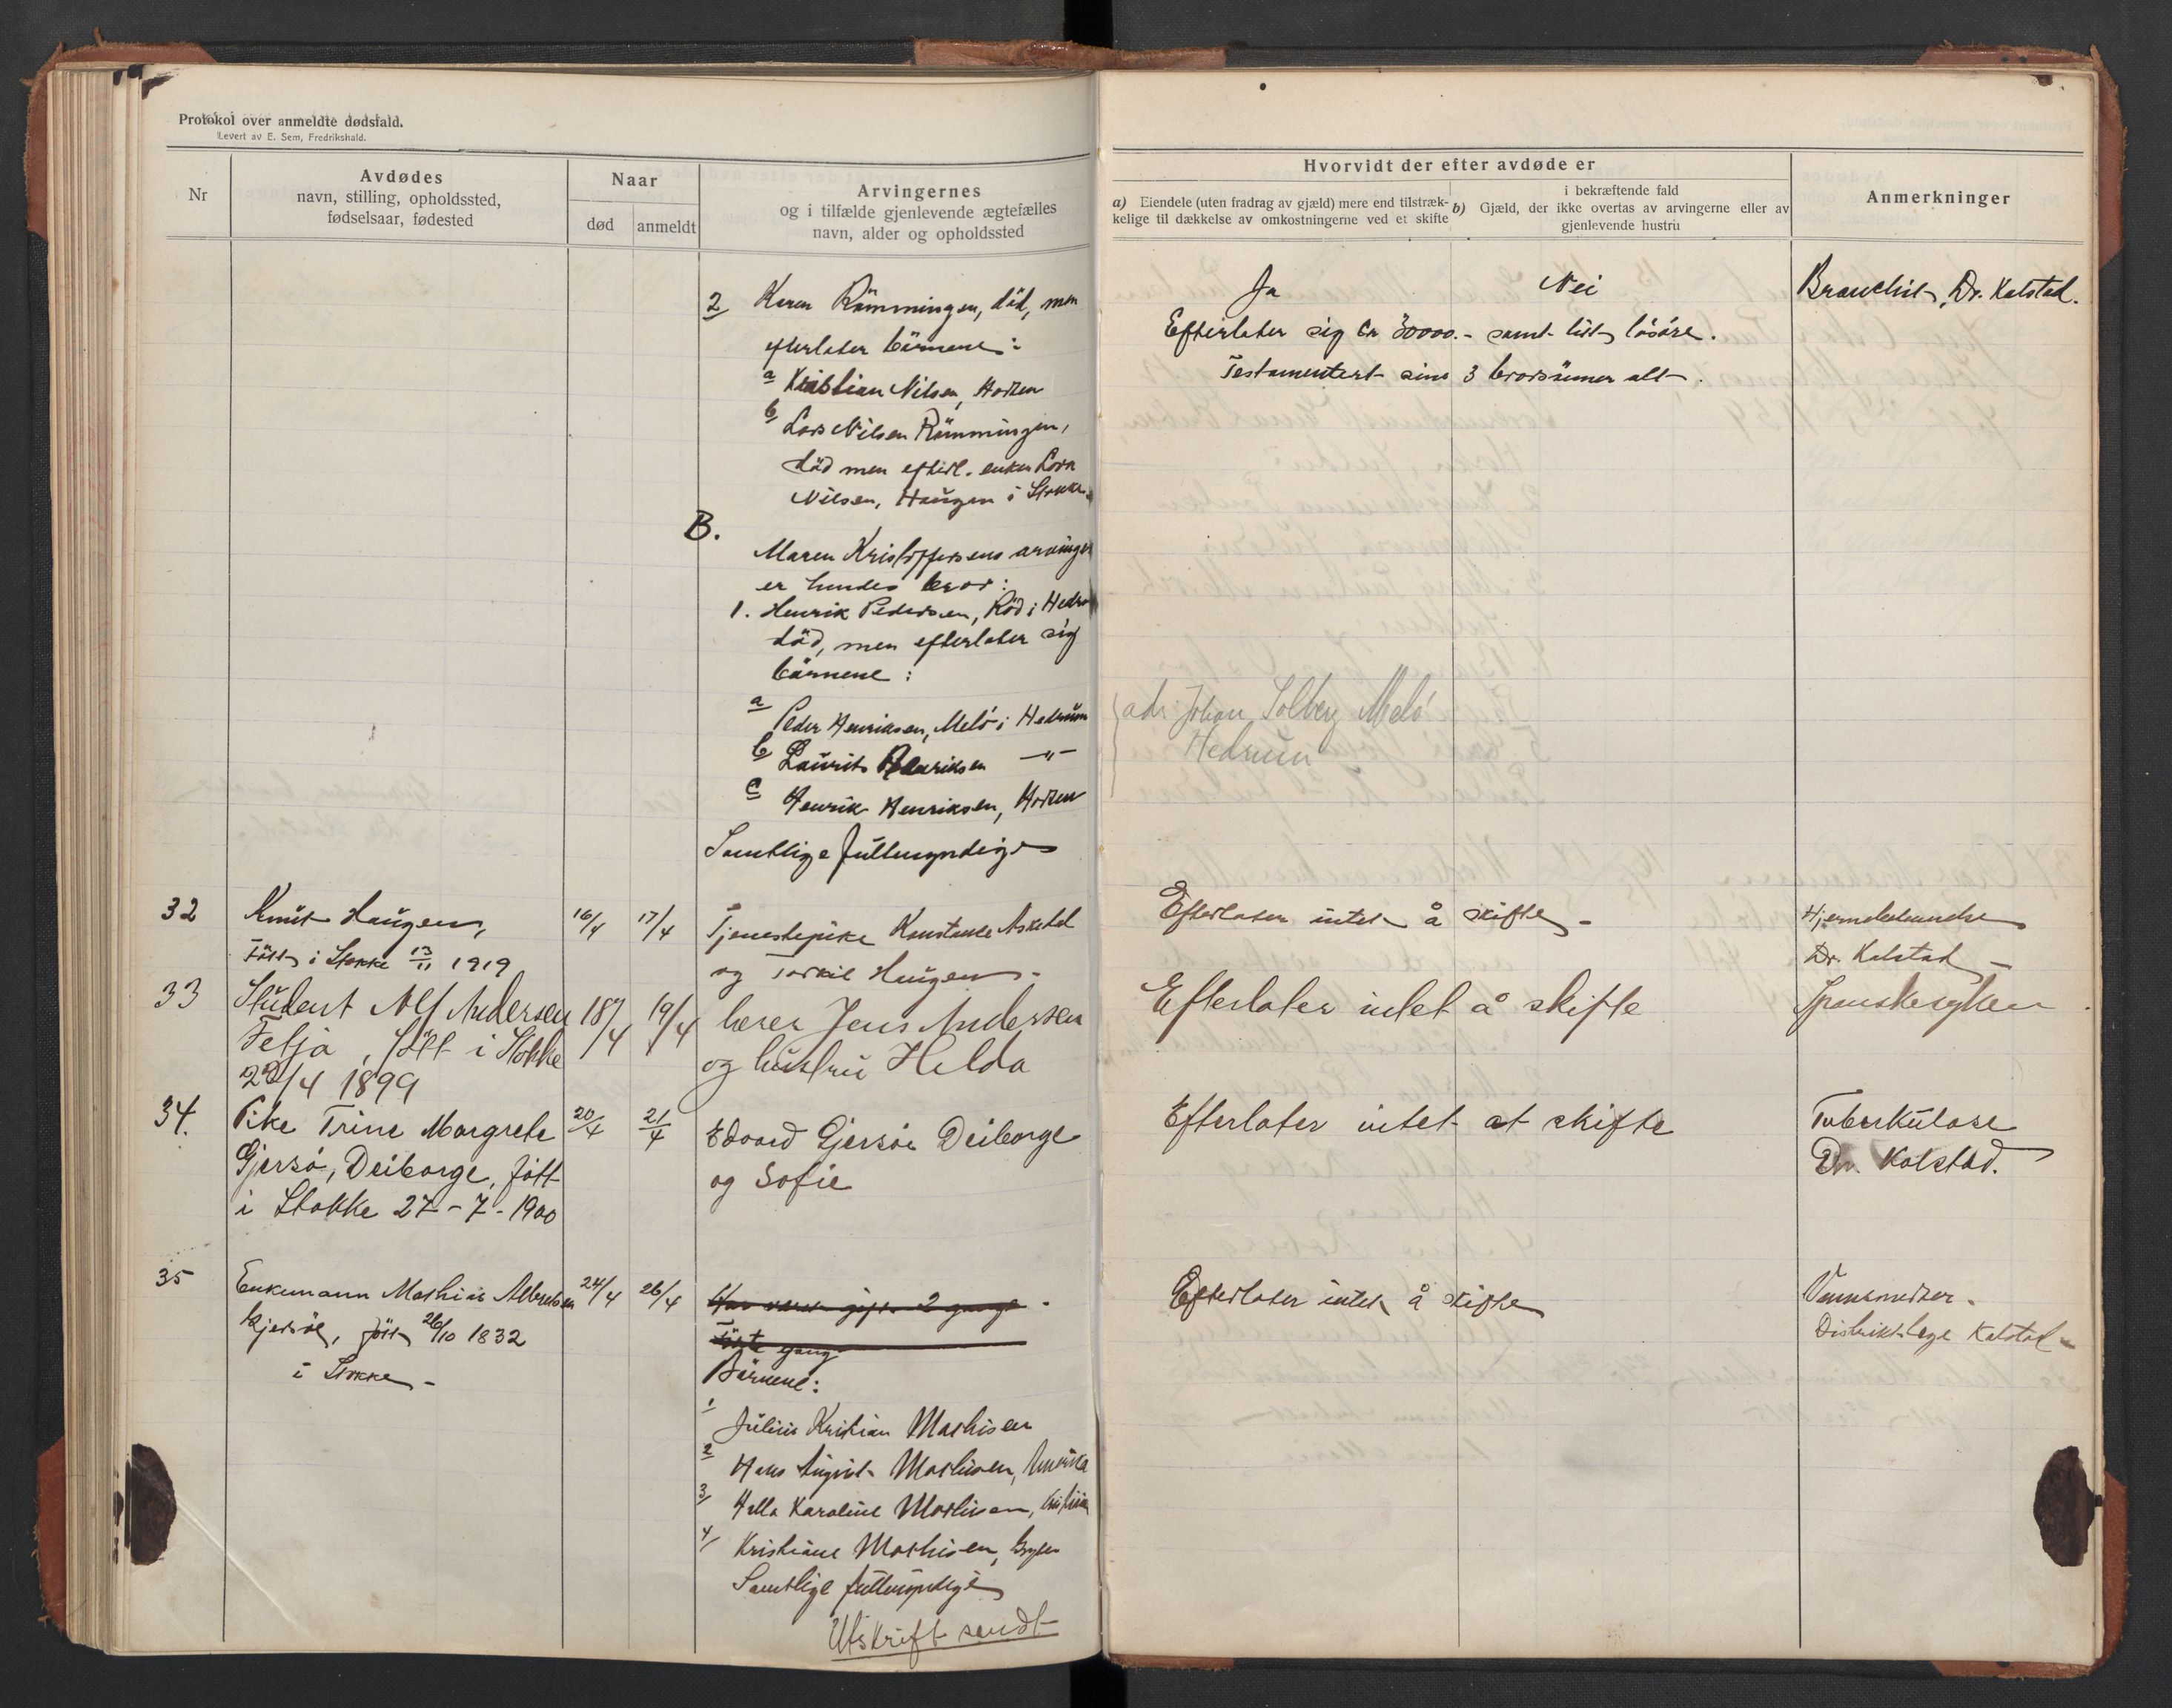 Protokol over anmeldte dødsfald.
Levert av E. Sem, Fredrikshald.
Nr
Avdødes
navn, stilling, opholdssted,
fødselsaar, fødested
Naar
død
anmeldt
Arvingernes
og i tilfælde gjenlevende ægtefælles
navn, alder og opholdssted
Hvorvidt der efter avdøde er
a) Eiendele (uten fradrag av gjæld) mere end tilstræk-
kelige til dækkelse av omkostningerne ved et skifte
b) i bekræftende fald
Gjæld, der ikke overtas av arvingerne eller av
gjenlevende hustru
Anmerkninger
2 Karen Rämmingen, död, men
efterlater börnene:
a Kristian Nilsen, Horten
b Lars Nilsen Römmingen,
död men efterl. enken Lova
Nilsen, Haugen i Stokke
B.
Maren Kristoffersens arvinger
er hendes bror:
1. Henrik Pedersen, Röd i Hedrum
död, men efterlater sig
börnene:
a Peder Henriksen, Melö i Hedrum
b Laurits Henriksen —"—
c Henrik Henriksen, Horten
Samtlige fullmyndige
Ja Nei
Efterlater sig kr 30000.- samt litt lösöre.
Testamentert sine 3 brorsönner alt.
Bronchit, Dr. Kolstad.
adr Johan Solberg Melö
Hedrum
32 Knut Haugen, 16/4 17/4 Tjenestepike Konstanse Askedal
Född i Stokke 13/11 1919 og Torkil Haugen.
Efterlater intet å skifte - Hjernebetændelse
Dr. Kolstad
33 Student Alf Andersen 18/4 19/4 lærer Jens Andersen
Fetja, född i Stokke og hustru Helda
22/4 1899
Efterlater intet å skifte Spanskesyken
34. Pike Trine Margrete 20/4 21/4 Edvard Gjersöe Deiborge
Gjersö, Deiborge, född og Sofie
i Stokke 27-7-1900
Efterlater intet at skifte Tuberkulose
Dr. Kolstad.
35 Enkemann Mathias Albretsen 24/4 26/4 Har været gift 2 gange.
Gjersöe, född 26/10 1832 Förste gang
i Stokke - Börnene:
1 Julius Kristian Mathisen
2 Hans August Mathisen, Amerika
3 Hella Karoline Mathisen, Kristiania
4 Kristiane Mathisen,
Samtlige fullmyndige
Utskrift sendt
Efterlater intet å skifte
Distriktslege Kolstad